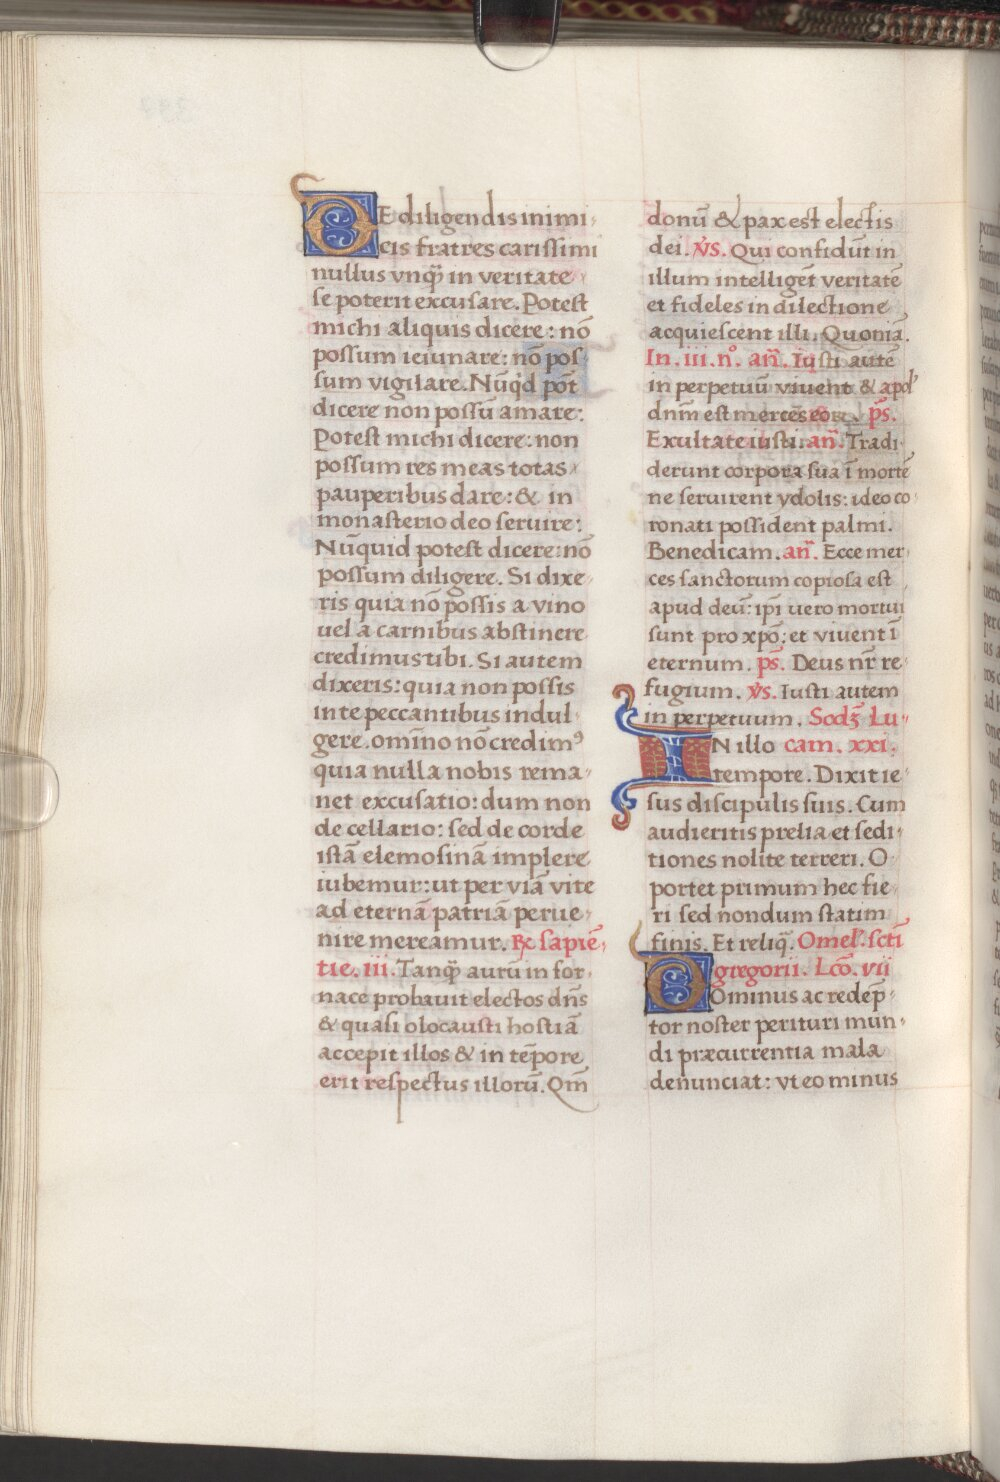 DE diligendis inimi-
cis fratres carissimi
nullus vnqꝫ in veritate
se poterit excusare. Potest
michi aliquis dicere: nō
possum ieiunare: nō pos-
sum vigilare. Nūqd pōt
dicere non possū amare:
Potest michi dicere: non
possum res meas totas
pauperibus dare: & in
monasterio deo seruire:
Nūquid potest dicere: nō
possum diligere. Si dixe-
ris quia nō possis a vino
uel a carnibus abstinere
credimus tibi. Si autem
dixeris: quia non possis
in te peccantibus indul-
gere. omīno nō credimꝰ
quia nulla nobis rema-
net excusatio: dum non
de cellario: sed de corde
istā elemosinā implere
iubemur: ut per viā vite
ad eternā patriā perue-
nire mereamur. ℞ sapiē-
tie. iii. Tanqꝫ aurū in for-
nace probauit electos dn̄s
& quasi olocausti hostiā
accepit illos & in tēpore
erit respectus illorū. Qm̄
donū & pax est electis
dei. v̄s. Qui confidūt in
illum intelligēt veritatē
et fideles in dilectione
acquiescent illi. Quoniā.
In. iii. n°. an̄. Iusti autē
in perpetuū viuent & apd'
dnm̄ est merces eoꝝ. p̄s.
Exultate iusti. an̄. Tradi-
derunt corpora sua ī mortē
ne seruirent ydolis: ideo co-
ronati possident palmi.
Benedicam. an̄. Ecce mer-
ces sanctorum copiosa est
apud deū: ip̄i uero mortui
sunt pro xp̄o: et viuent ī
eternum. p̄s. Deus nr̄ re-
fugium. v̄s. Iusti autem
in perpetuum. Scdꝫ Lu-
IN illo cam. xxi.
tempore. Dixit ie-
sus discipulis suis. Cum
audieritis prelia et sedi-
tiones nolite terreri. O-
portet primum hec fie-
ri sed nondum statim
finis. Et reliq̄. Omel'. scti
gregorii. Lco̅. vii
DOminus ac redēp-
tor noster perituri mun-
di præcurrentia mala
denunciat: vt eo minus